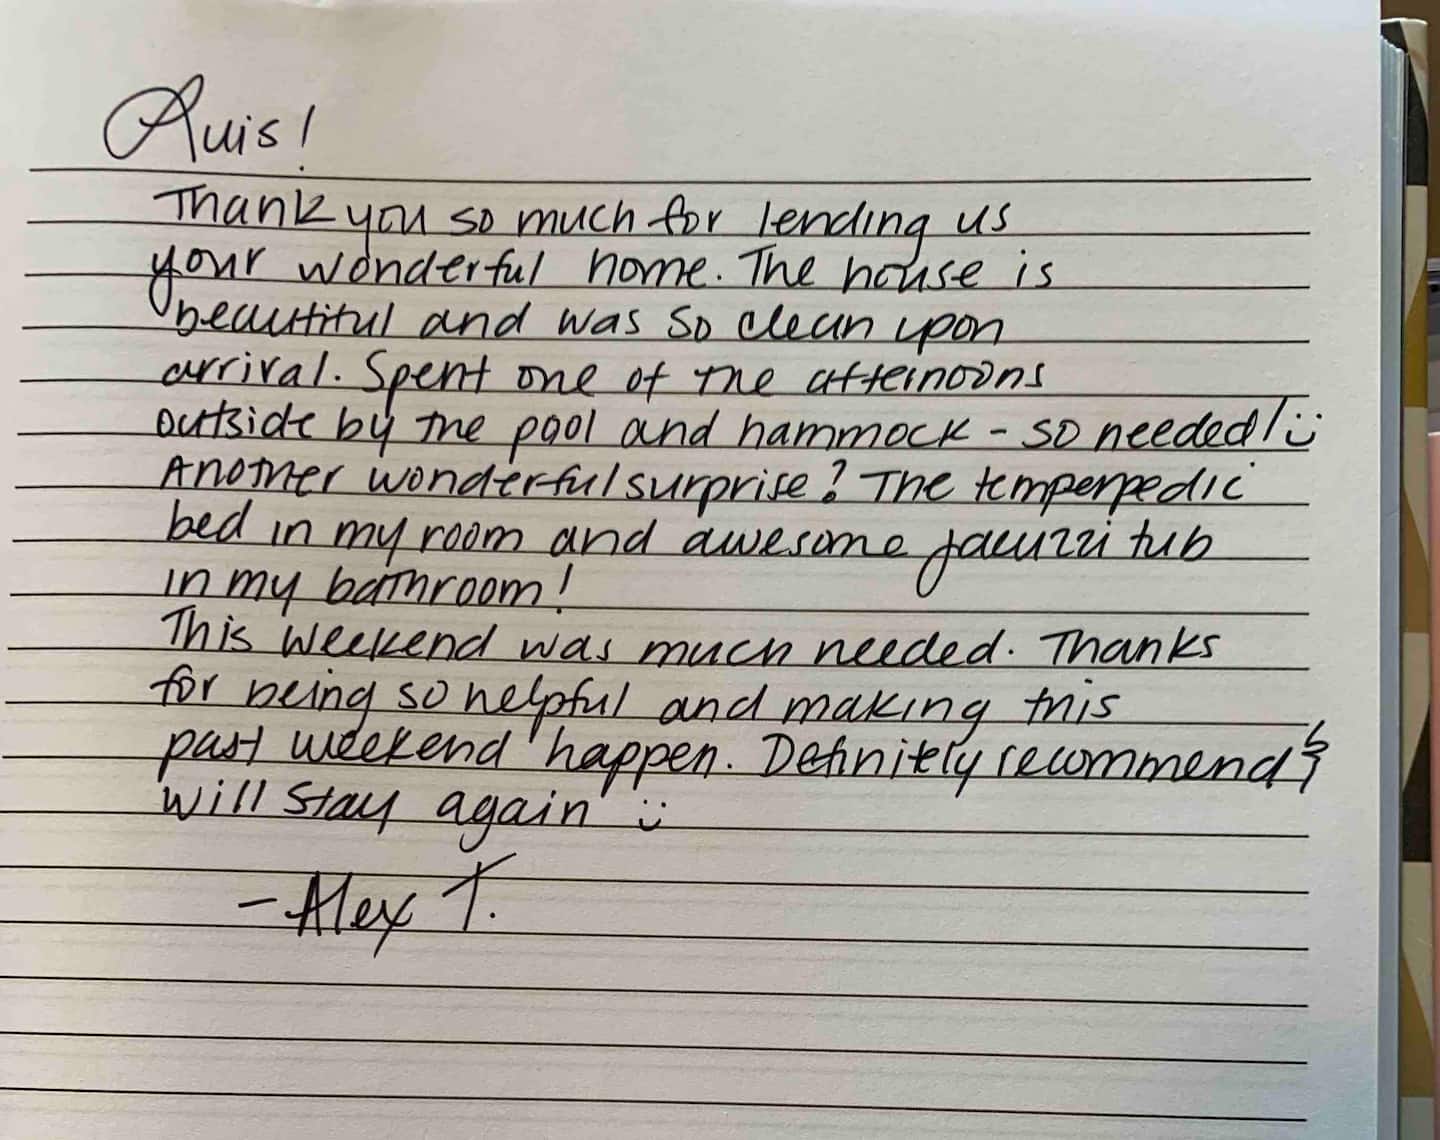 Luis!
Thank you so much for lending us
your wonderful home. The house is
beautiful and was so clean upon
arrival. Spent one of the afternoons
outside by the pool and hammock - so needed! :)
Another wonderful surprise? The temperpedic
bed in my room and awesome jacuzzi tub
in my bathroom!
This weekend was much needed. Thanks
for being so helpful and making this
past weekend happen. Definitely recommend &
will stay again :)
- Alex T.